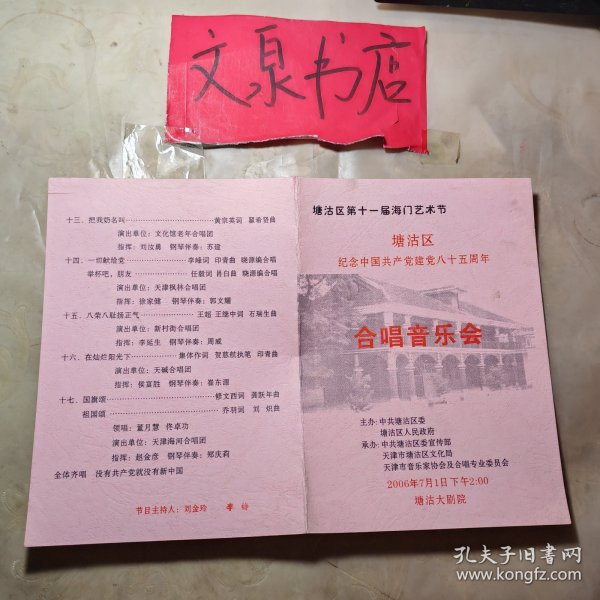 文泉书店
十三、把我奶名叫……黄宗英词 瞿希贤曲
演出单位：文化馆老年合唱团
指挥：刘汝勇 钢琴伴奏：苏谊
十四、一切献给党……李峰词 印青曲 晓源编合唱
举杯吧，朋友……任毅词 肖白曲 晓源编合唱
演出单位：天津枫林合唱团
指挥：徐家健 钢琴伴奏：郭文耀
十五、八荣八耻扬正气……王超 王继中词 石瑞生曲
演出单位：新村街合唱团
指挥：李延生 钢琴伴奏：周威
十六、在灿烂阳光下……集体作词 贺慈航执笔 印青曲
演出单位：天碱合唱团
指挥：侯富胜 钢琴伴奏：崔东源
十七、国旗颂……修文西词 龚跃年曲
祖国颂……乔羽词 刘炽曲
领唱：董月慧 佟卓功
演出单位：天津海河合唱团
指挥：赵金彦 钢琴伴奏：郑庆莉
全体齐唱 没有共产党就没有新中国
节目主持人：刘金玲 李
塘沽区第十一届海门艺术节
塘沽区
纪念中国共产党建党八十五周年
合唱音乐会
主办：中共塘沽区委
塘沽区人民政府
承办：中共塘沽区委宣传部
天津市塘沽区文化局
天津市音乐家协会及合唱专业委员会
2006年7月1日下午2:00
塘沽大剧院
孔夫子旧书网
www.kongfz.com